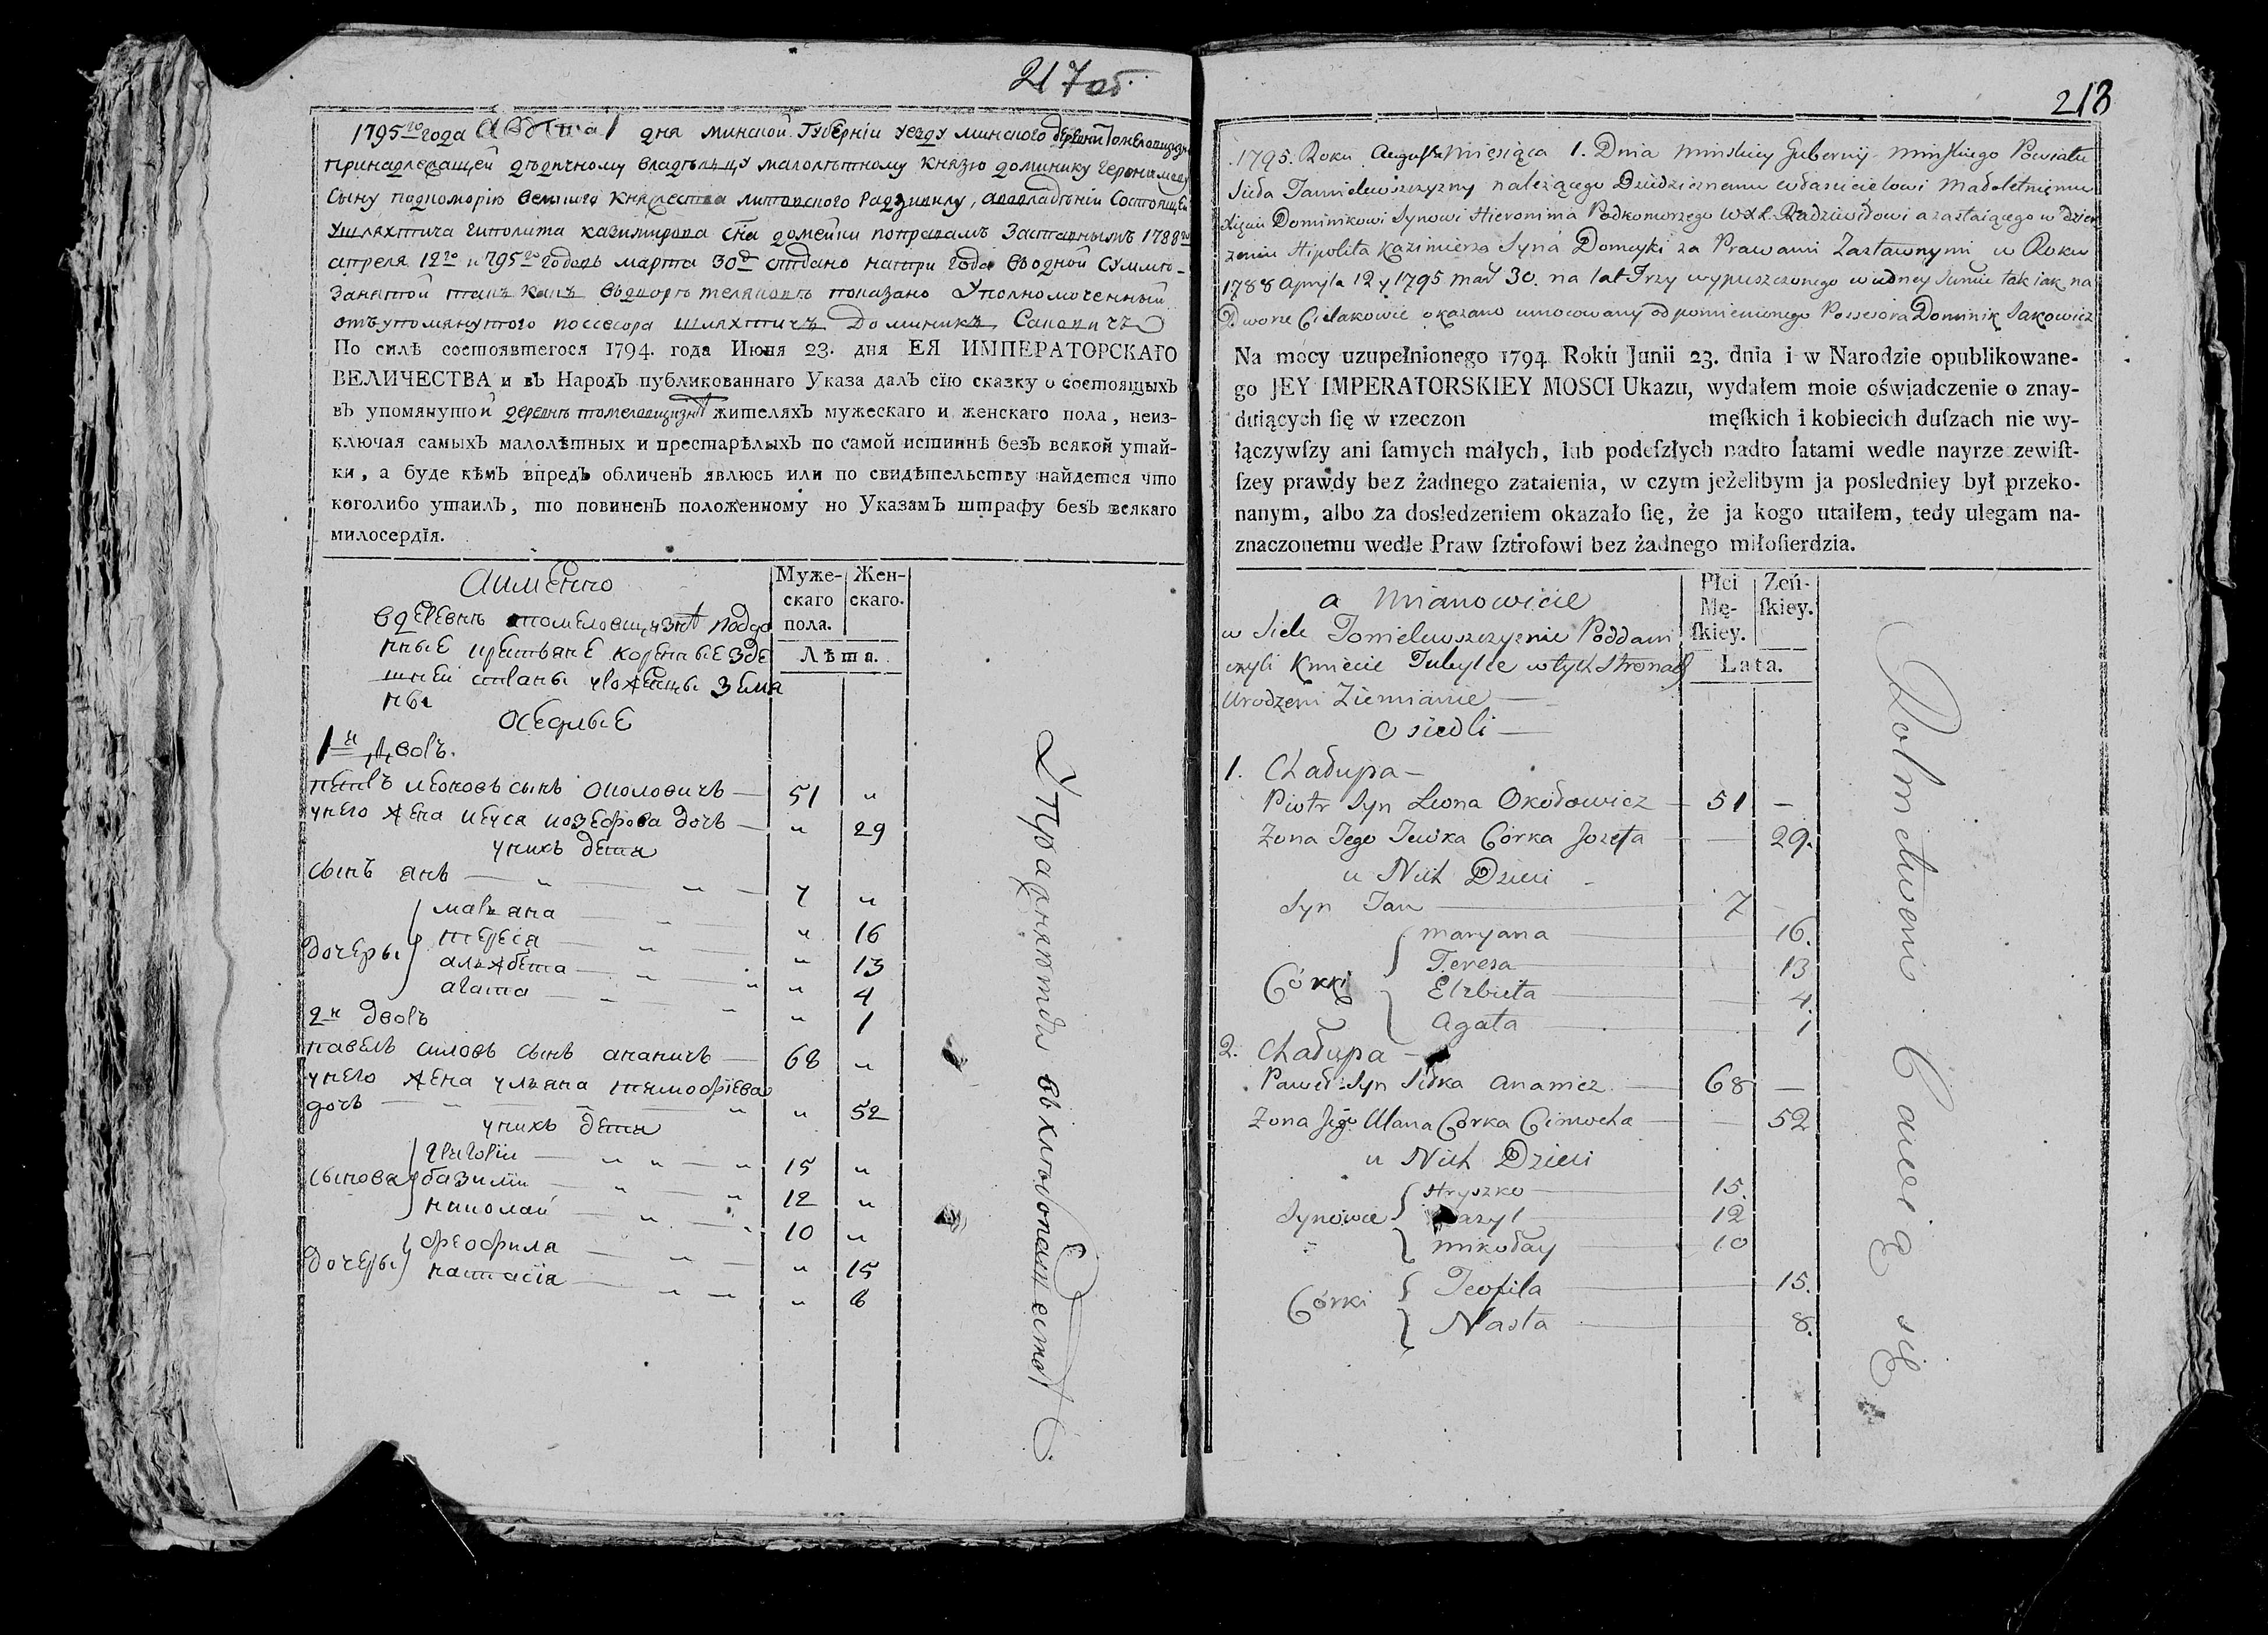 217 об.
1795го года Августа 1 дня минской Губернїи уезду минского деревни Томеловщизны
принадлежащей дѣдичному владѣльцу малолѣтному князю доминику Геронимову
Сыну подкоморїю великого княжества литовского Радзивилу, авовладѣнїи Состоящей
Ушляхтича гиполита казимирова сна домейки поправамъ Заставнымъ 1788го
апреля 12го и 795го годовъ марта 30д отдано натри года водной суммѣ
Занятой такъ какъ показано Уполномоченный
отъупомянутого поссесора шляхтичъ Доминикъ
По силѣ состоявшегося 1794. года Июня 23. дня ЕЯ ИМПЕРАТОРСКАГО
ВЕЛИЧЕСТВА и въ Народъ публикованнаго Указа далъ сїю сказку о состоящыхъ
въ упомянутой деревнѣ томеловщизнѣ жителяхъ мужескаго и женскаго пола, неиз-
ключая самыхъ малолѣтныхъ и престарѣлыхъ по самой истиннѣ безъ всякой утай-
ки, а буде кѣмъ впредь обличенъ явлюсь или по свидѣтельству найдется что
коголибо утаилъ, то повиненъ положенному по Указамъ штрафу безъ всякаго
милосердїя.
Аимѣнно
вдеревнѣ томеловщизнѣ поддa
нные крестьяне коренные зде
шнеи стваны уроженцы земя
ны
оседлые
Муже-
скаго
пола.
Жен-
скаго.
Лѣта.
1й дворъ.
петръ леоновъ сынъ околовичъ — 51 "
унего жена иевса иозефова дочь — " 29
унихъ дети
сынъ янъ — 7 "
дочеры
марьяна — " 16
тереса — " 13
альжбета — " 4
агата — " 1
2й дворъ
павелъ силовъ сынъ ананичъ — 68 "
унего жена ульяна тимофїева
дочь — " 52
унихъ дети
сынова
григорїи — 15 "
базилїи — 12 "
николаи — 10 "
дочеры
феофила — " 15
настасїя — " 8
Упражняются въ хлѣбопашествѣ
218
1795. Roku Augusta Miesiąca 1. Dnia Minskiey Gubernij Minskiego Powiatu
Sieła Tamielewszczyzny należącego Dziedzicznemu własicielowi Małoletniemu
Xięciu Dominikowi Synowi Hieronima Podkomorzego W X L Radziwiłowi a zastaiącego w Dzier
zeniu Hipolita Kazimierza Syna Domeyki za Prawami Zastawnymi w Roku
1788 Apryla 12 y 1795 mar 30. na lat Trzy wypuszczonego w iedney Sumie tak iak na
Dworze Cielakowie okazano umocowany od pomienionego Possesora Dominik Sakowicz
Na mocy uzupełnionego 1794 Roku Junii 23. dnia i w Narodzie opublikowane-
go JEY IMPERATORSKIEY MOSCI Ukazu, wydałem moie oświadczenie o znay-
duiących ſię w rzeczon męſkich i kobiecich duſzach nie wy-
łączywſzy ani ſamych małych, lub podeſzłych nadto latami wedle nayrzezewiſt-
ſzey prawdy bez żadnego zataienia, w czym jeżelibym ja posledniey był przeko-
nanym, albo za dosledzeniem okazało ſię, że ja kogo utaiłem, tedy ulegam na-
znaczonemu wedle Praw ſztrofowi bez żadnego miłoſierdzia.
a mianowicie
w Siele Tomelewszczyznie Poddani
czyli Kmiecie Tubylce w tych Stronach
Urodzeni Ziemianie —
Osiedli —
Płci
Mę-
ſkiey.
Zeń-
ſkiey.
Lata.
1. Chałupa —
Piotr Syn Leona Okołowicz — 51 —
Zona Jego Jewka Córka Jozefa — 29.
u Nich Dzieci —
Syn Jan — 7
Córki
Maryana — 16.
Teresa — 13
Elzbieta — 4.
Agata — 1
2. Chałupa —
Paweł Syn Siłka Ananicz — 68 —
Zona Jego Ulana Córka Cimocha — 52
u Nich Dzieci
Synowie
Hryszko — 15.
Bazyl — 12
Mikołay — 10
Córki
Teofila — 15.
Nasta — 8.
Rolnictwem Bawią się